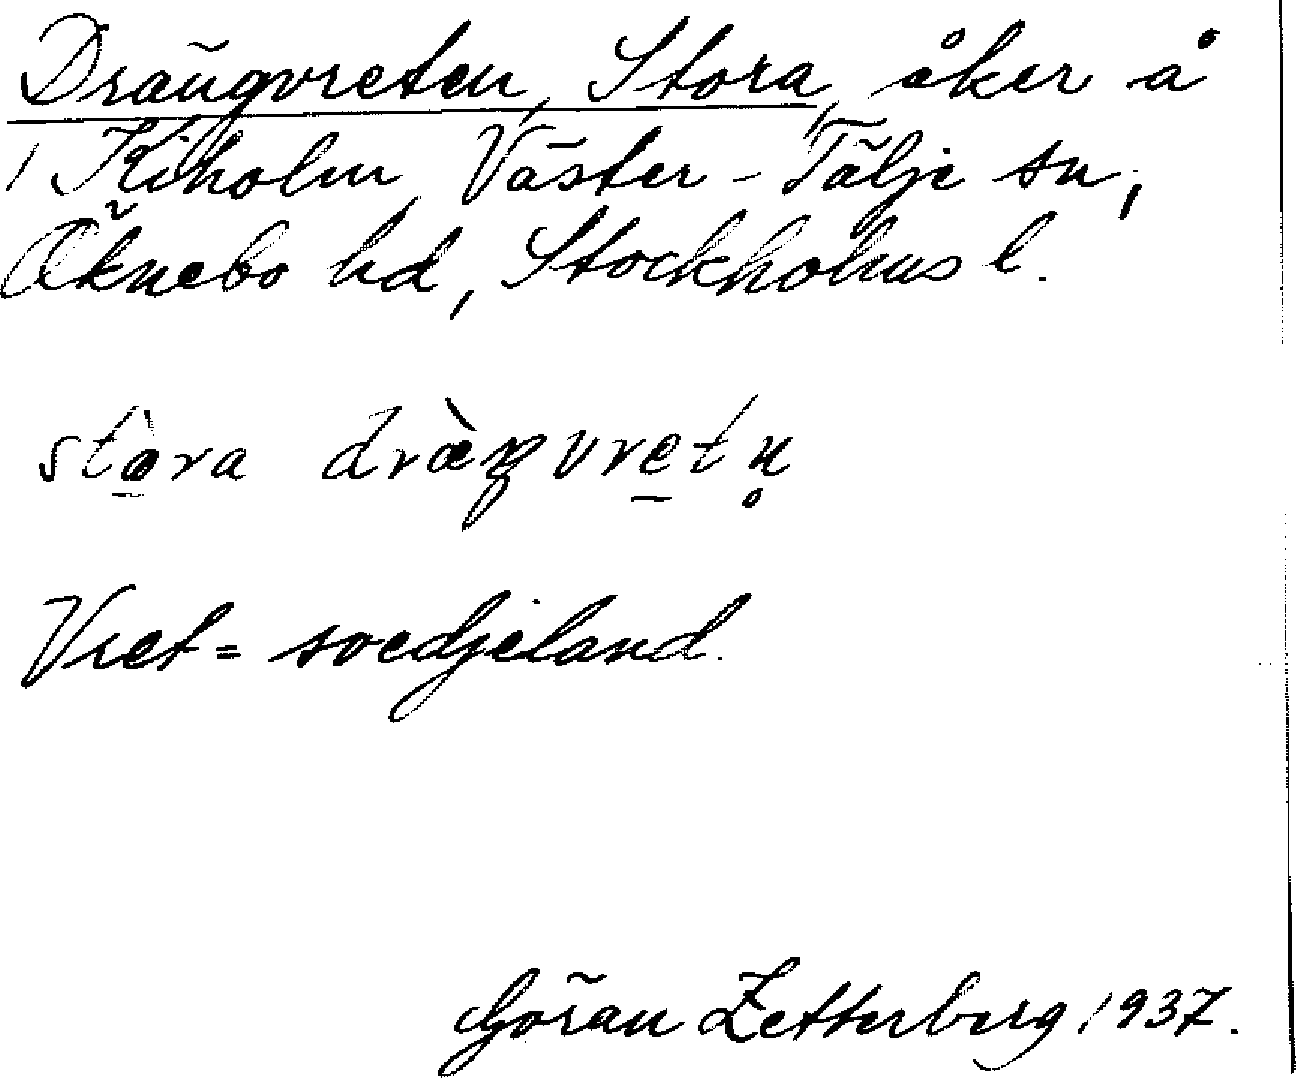 Drängvreten, Stora, åker å
1 Kiholm, Väster-Tälje sn,
Öknebo hd, Stockholms l.
stora dræŋvretn̥
Vret = svedjeland.
Göran Zetterberg 1937.